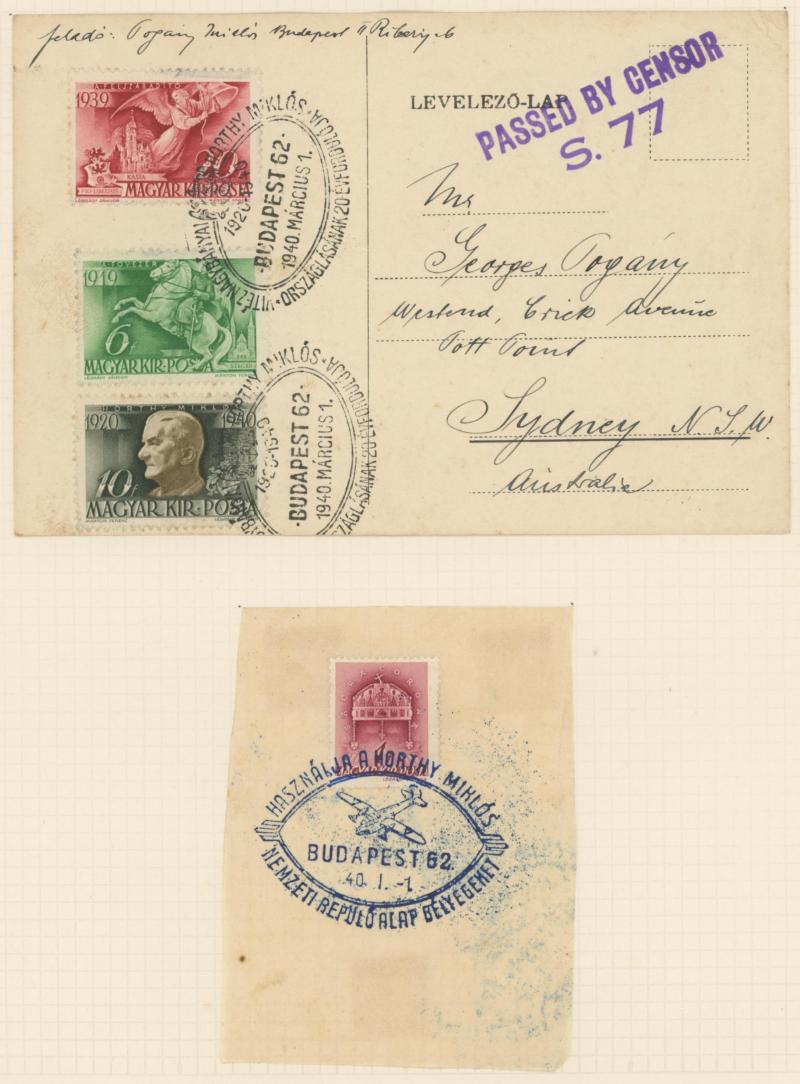 feladó: Pogány Miklós Budapest II Ribery u 6
LEVELEZŐ-LAP
PASSED BY CENSOR
S. 77
A FELSZABADÍTÓ
1939
KASSA
MAGYAR KIR. POSTA
LÉGRÁDY SÁNDOR
VITÉZ NAGYBÁNYAI HORTHY MIKLÓS
ORSZÁGLÁSÁNAK 20 ÉVFORDULÓJA
1920-1940
·BUDAPEST 62·
1940. MÁRCIUS 1.
A FŐVEZÉR
1919
6f
MAGYAR KIR. POSTA
LÉGRÁDY SÁNDOR
HORTHY MIKLÓS
1920 1940
10f
MAGYAR KIR. POSTA
HORTHY MIKLÓS
ORSZÁGLÁSÁNAK 20 ÉVFORDULÓJA
1920-1940
·BUDAPEST 62·
1940. MÁRCIUS 1.
Mr
Georges Pogány
Westend, Crick Avenue
Pott Point
Sydney N.S.W.
Australia
1
MAGYAR KIR. POSTA
HASZNÁLJA A HORTHY MIKLÓS
BUDAPEST 62
40. I. -1
NEMZETI REPÜLŐ ALAP BÉLYEGEKET